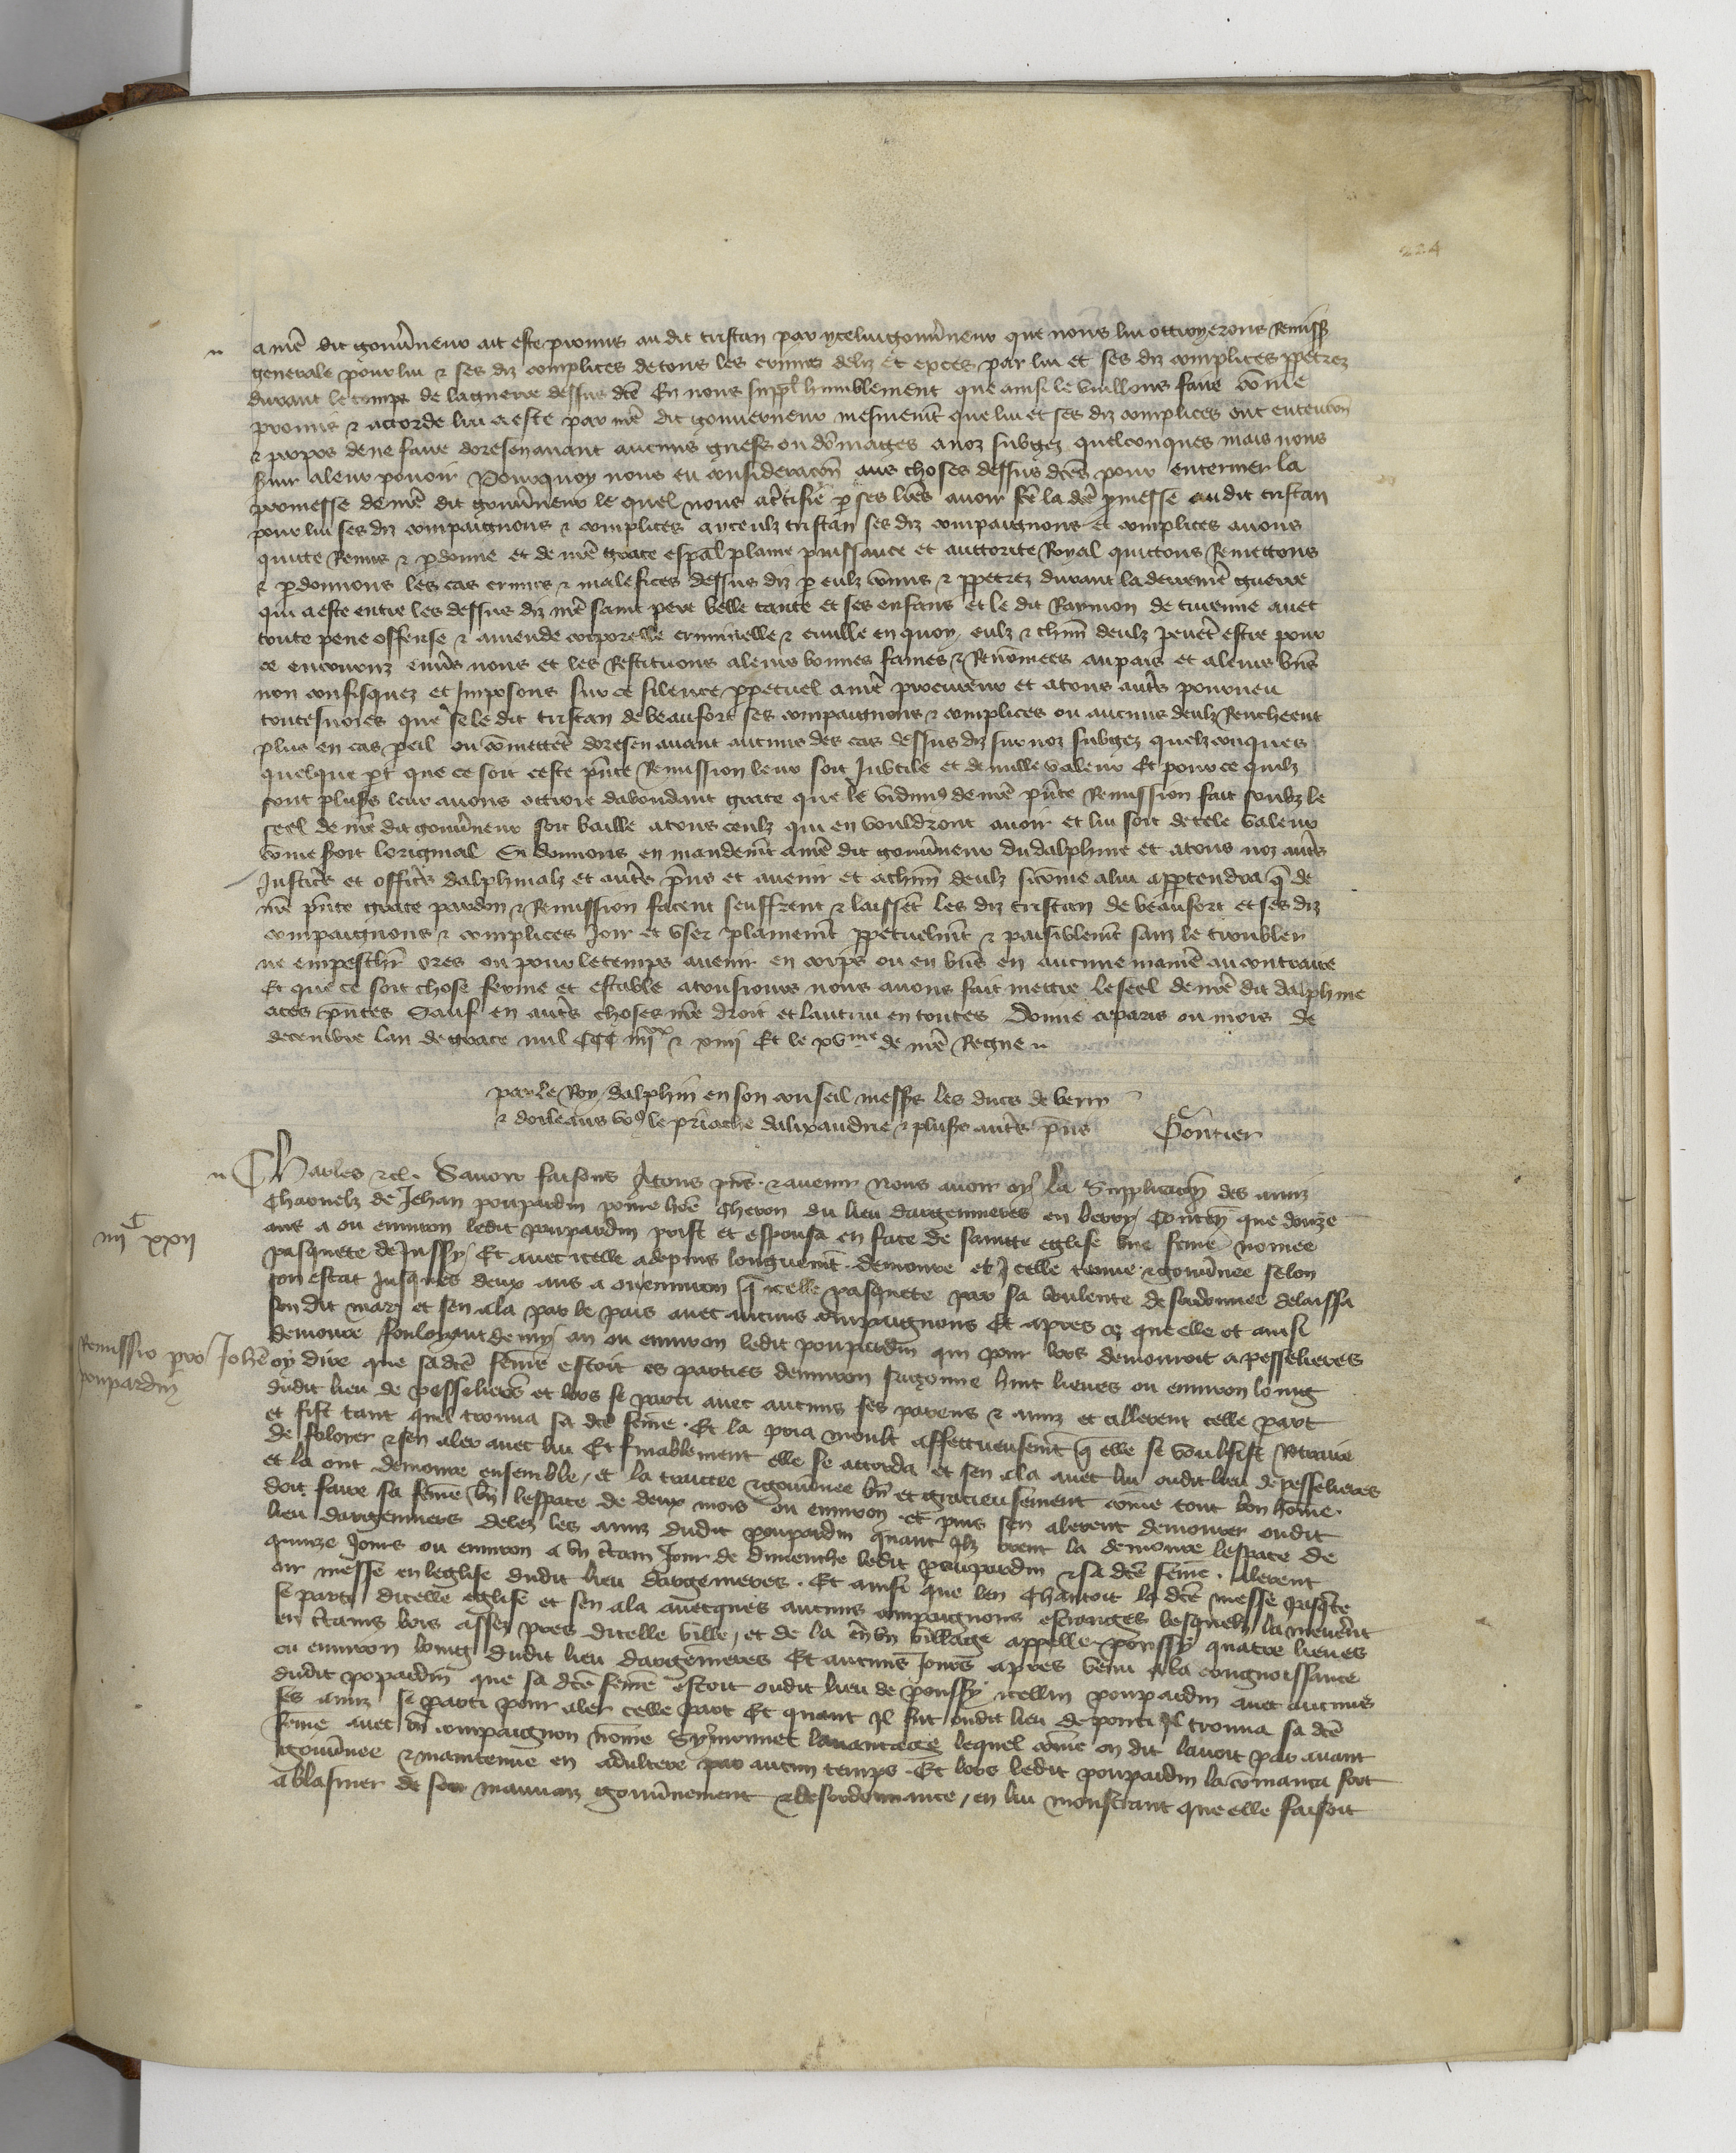 224
a nre dit gouvneur ait este promis au dit tristan par yceluigouvneur que nous lui ottroyerons Remiss
generale pour lui & ses diz complices de tous les crimes deliz et exces par lui et ses diz complices ppetrez
durant le temps de laguerre dessus dce En nous suppl humblement que ainsi le vuillons faire comme
promis & accorde lui a este par nre dit gouverneur mesmemt que lui et ses diz complices ont entencon
& propos de ne faire doresenavant aucuns griefs ou dommages a noz subgez quelconques mais nous
suir aleur pouoir Pourquoy nous eu consideracon aus choses dessus dces pour enteriner la
promesse de nre dit gouvneur le quel nous a certifie p ses lres avoir fce la dce pmesse au dit tristan
pour lui ses diz compaignons & complices a yceulz tristan ses diz compaignons et complices avons
quitte Remis & pdonne et de nre grace espal plaine puissance et auttorite Royal quittons Remettons
& pdonnons les cas crimes & malefices dessus diz p eulz comis & ppetrez durant la derreniere guerre
qui a este entre les dessus diz nre saint pere belle tante et ses enfans et le dit Raymon de turenne avec
toute pene offense & amende corporelle criminelle & civille en quoy eulz & chun deulz peuent estre pour
ce encouruz envs nous et les Restituons aleurs bonnes fames & Renomees aupais et aleurs bns
non confisquez et Imposons sur ce silence ppetuel a nre procureur et atous autrs pourveu
toutesvoies que se le dit tristan de beaufort ses compaignons & complices ou aucuns deulz Rencheent
plus en cas peil ou comettent doresenavant aucuns des cas dessus diz sur noz subgez quelzconques
quelque pt que ce soit ceste pnte Remission leur soit Inutile et de nulle valeur Et pour ce quilz
sont plusrs leur avons ottroie dabondant grace que le vidimus de nre pnte Remission fait soubz le
seel de nre dit gouvneur soit baille atous ceulz qui en vouldront avoir et lui soit de tele valeur
come soit loriginal Si donnons en mandemt a nre dit gouvneur dudalphine et atous noz autrs
Justicrs et officrs dalphinalz et autrs pns et avenir et achun deulz sicome alui apptendra q de
nre pnte grace pardon & Remission facent seuffrent & laissent les diz tristan de beaufort et ses diz
compaignons & complices Joir et user plainemt ppetuelmt & paisiblemt sanz le troubler
ne empeschr ores ou pour letemps avenir en corps ou en bns en aucune maniere au contraire
Et que ce soit chose ferme et estable atousiours nous avons fait mettre leseel de nre dit dalphine
aces pntes Sauf en autrs choses nre droit et lautrui en toutes Donne aparis ou mois de
decembre lan de grace mil CCC iiijxx & xiiij Et le xvme de nre Regne
par le Roy dalphin en son conseil messrs les ducs de berry
& dorleans vous le priarche dalixandrie & plusrs autrs pns Gontier
Charles &c. Savoir faisons Atous pns & avenir Nous avoir oy la Supplicacon des amis
Charnelz de Jehan poupardin povre home Cheron du lieu dargenmeres en berry Conten que douze
ans a ou environ ledit poupardin prist et espousa en face de saincte eglise une feme nomee
pasquete de Jussy Et avec icelle adepuis longuemt demoure et Icelle tenue & gouvnee selon
iiijC xxij
son estat Jusques deux ans a ou environ q icelle pasquete par sa voulente desordonnee delaissa
son dit mary et sen ala par le pais avec aucuns compaignons Et apres ce que elle ot ainsi
demoure foulorant demy an ou environ ledit poupardin qui pour lors demouroit a pesselieres
Remissio pro Johe
poupardin
oy dire que sadce feme estoit es parties denviron huit lieues ou environ loing
dudit lieu de pesselieres et lors se parti avec aucuns ses parens & amis et allerent celle part
et fist tant quel trouva sa dce feme. Et la pria moult affectueusemt q elle se voulsist Retraire
de folorer & sen aler avec lui Et finablement elle se accorda et sen ala avec lui oudit lieu depesselieres
et la ont demoure ensemble, et la traictee & gouvnee bn et gracieusement come tout bon home
doit faire sa feme bn lespace de deux mois ou environ et puis sen alerent demourer oudit
lieu dargenmeres delez les amis dudit poupardin quant Ilz orent la demoure lespace de
quinze Jours ou environ a un ctain Jour de dimenche ledit poupardin & sa dce feme alerent
oir messe en leglise dudit lieu dargenmeres. Et ainsi que len Chantoit la dce messe pasqte
se parti dicelle eglise et sen ala avecques aucuns compaignons estranges lesquelz la menerent
en ctains bois assez pres dicelle ville, et de la en un village appelle poussy quatre lieues
ou environ loing dudit lieu dargenmeres Et aucuns Jours apres venu ala congnoissance
dudit popardin que sa dce feme estoit oudit lieu de poussy icellui poupardin avec aucuns
ses amis se parti pour aler celle part Et quant Il fut oudit lieu depouci Il trouva sa dce
feme avec un compaignon nome Symonnet lequel come on dit lavoit par avant
gouvnee & maintenue en adultere par aucun temps. Et lors ledit poupardin lacomanca fort
ablasmer de son mauvaiz gouvnement & desordonnance, en lui monstrant que elle faisoit